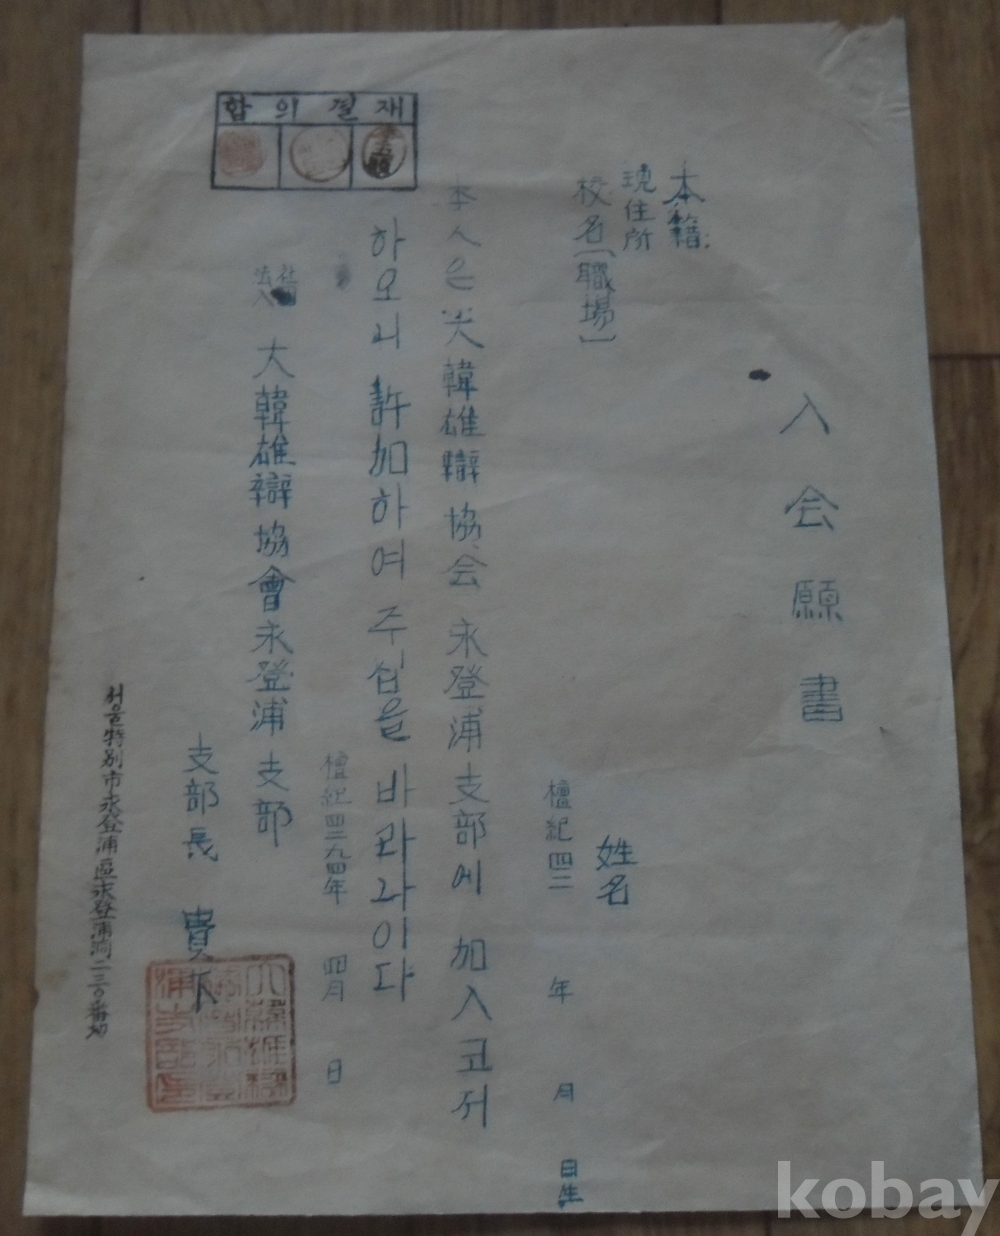 入会願書
本籍
現住所
校名(職場)
姓名
檀紀四二 年 月 日生
本人은 大韓雄辯協会 永登浦支部에 加入코저
하오니 許加하여 주심을 바라나이다
檀紀四二九四年 四月 日
社團法人 大韓雄辯協會永登浦支部
支部長 貴下
서울特別市永登浦區永登浦洞二三0番地
합의결재
kobay